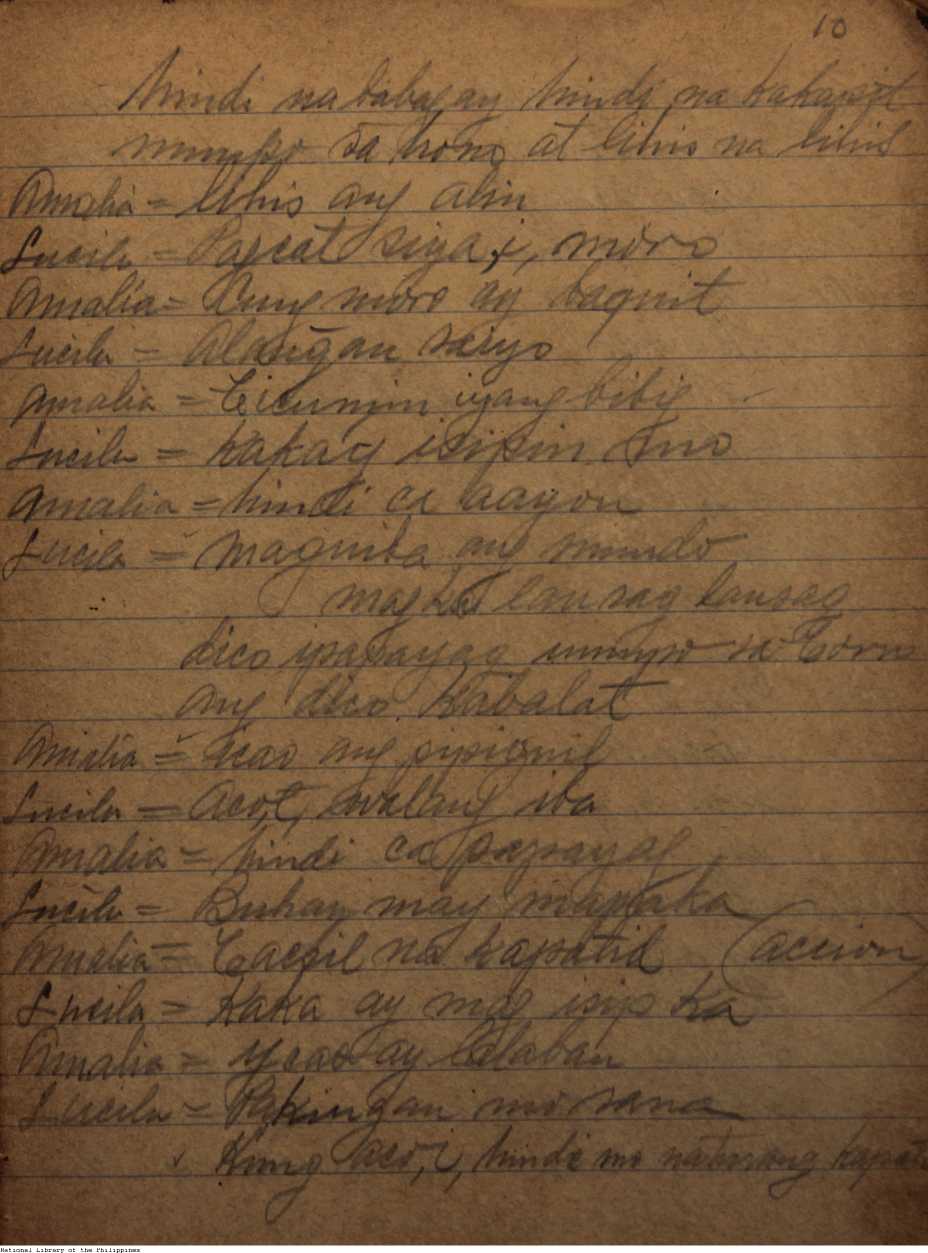 10
hindi nababagay hindi na kakapit
mumpo sa trono at lihis na lihis
Amalia = lihis ang alin
Lucila = Pagcat siya,i, moro
Amalia = Kung moro ay baquit
Lucila = Alangan saiyo
Amalia = Ticumin iyang bibig
Lucila = Kaka ay isipin mo
Amalia = hindi ca aayon
Lucila = maguiba ang mundo
mag lansag lansag
dico ipapayag umupo sa Trono
ang dico kabalat
Amalia = icao ang pipiguil
Lucila = Aco,t, walang iba
Amalia = hindi ca papayag
Lucila = Buhay may mapaka
Amalia = Tacsil na kapatid (accion)
Lucila = Kaka ay mag isip ka
Amalia = ycao ay lalaban
Lucila = Pakingan mo sana
Kung aco,i, hindi mo naturang kapatid
National Library of the Philippines